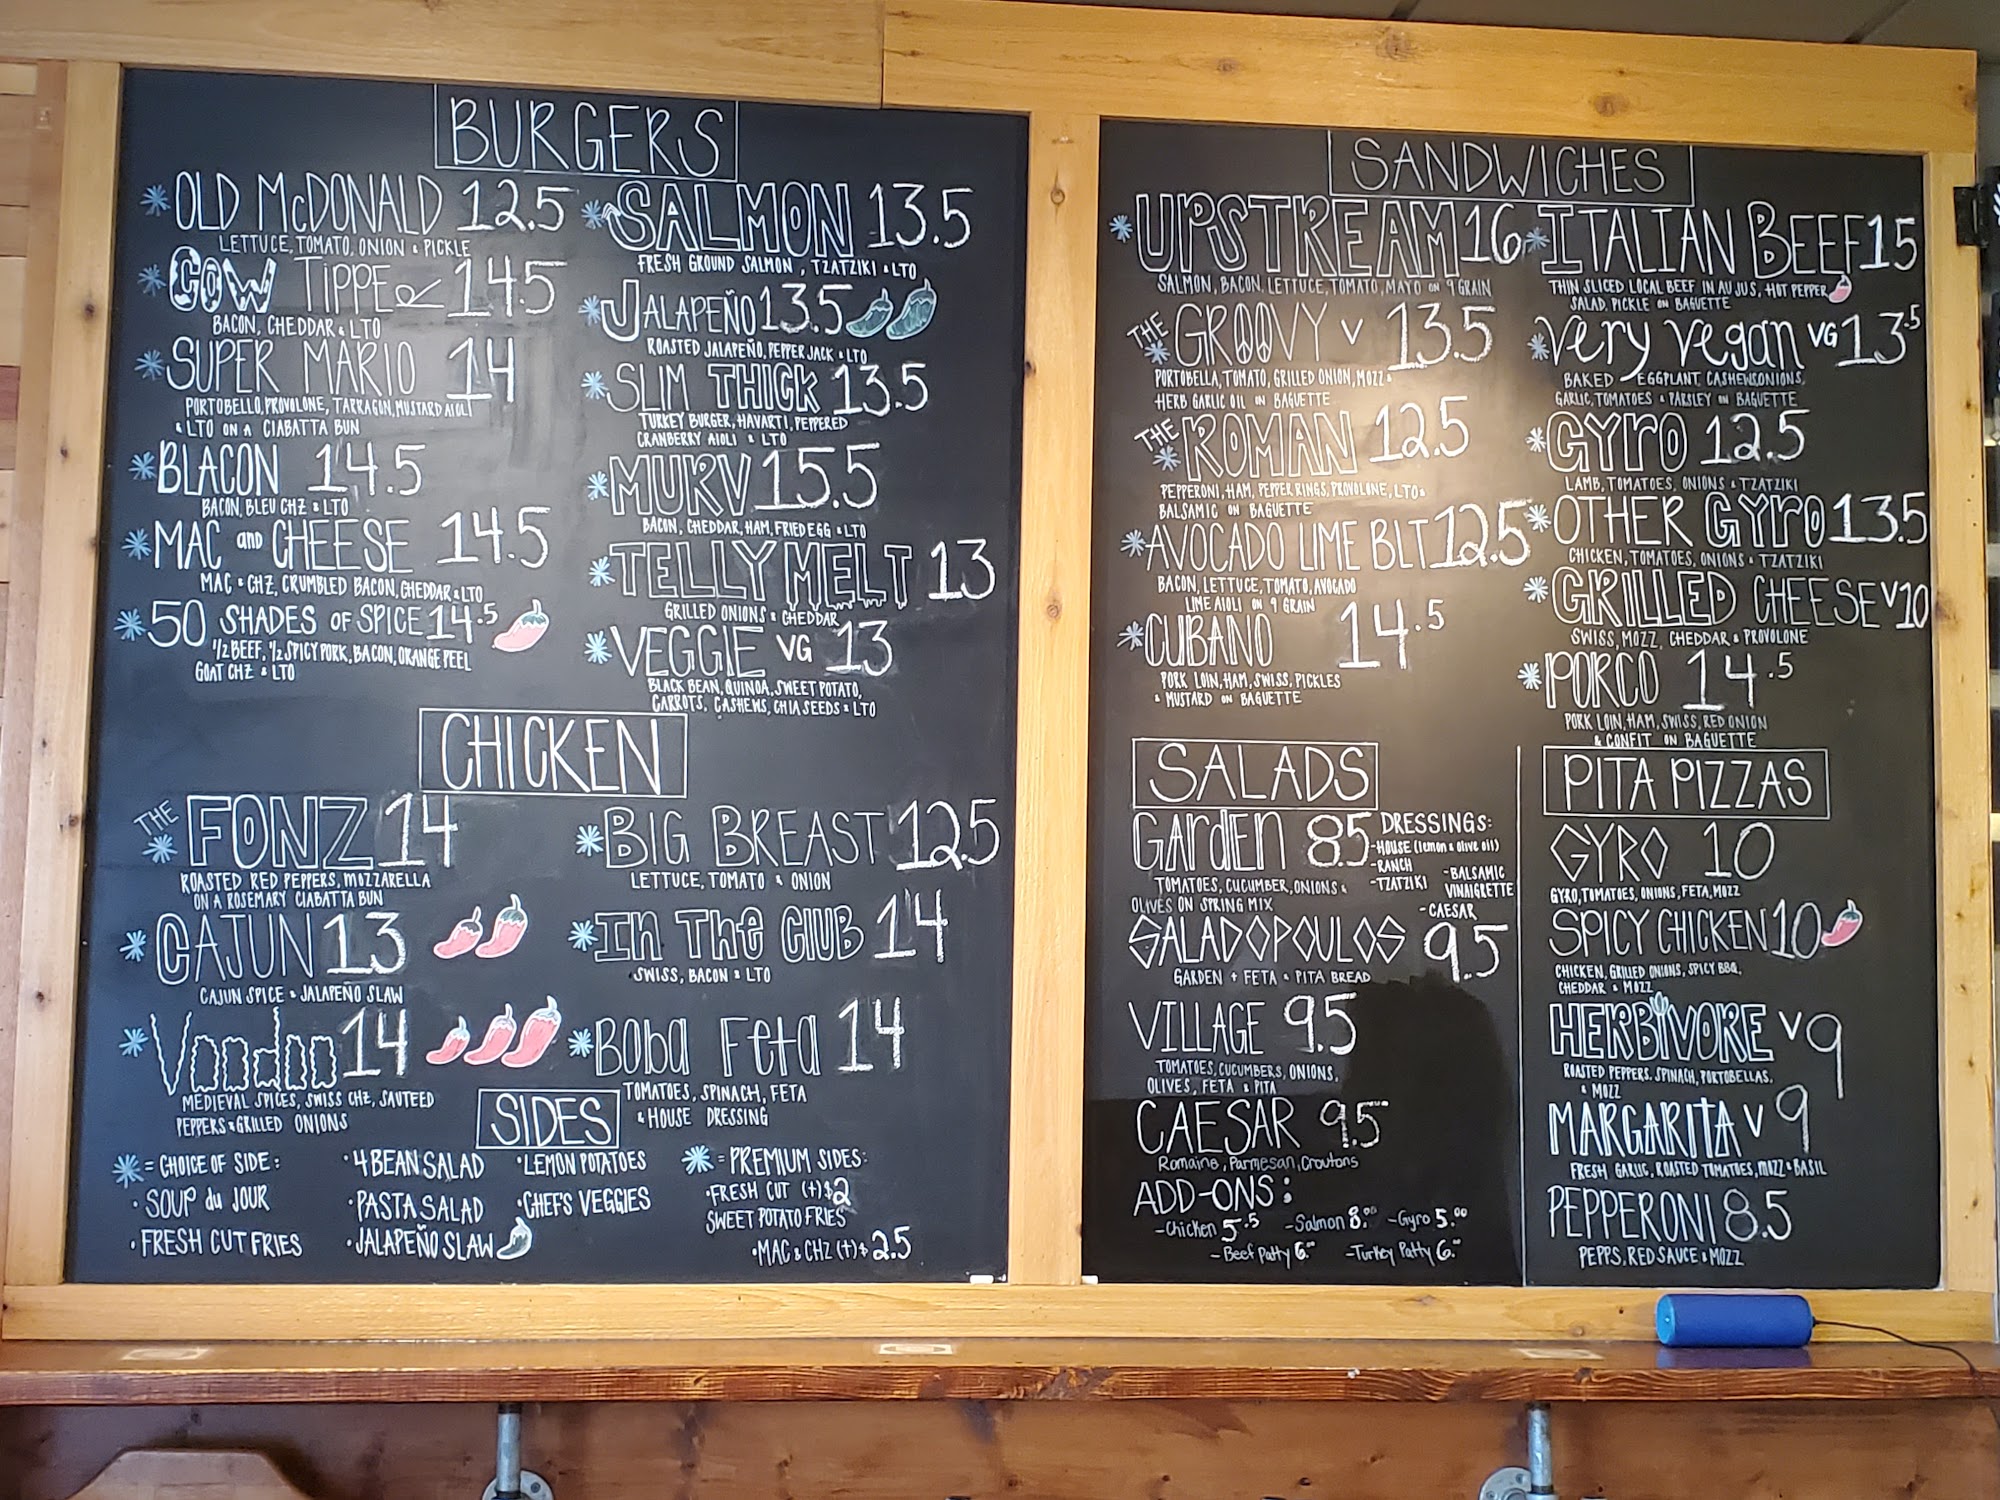 BURGERS
* OLD McDONALD 12.5
LETTUCE, TOMATO, ONION & PICKLE
* COW TIPPER 14.5
BACON, CHEDDAR & LTO
* SUPER MARIO 14
PORTOBELLO, PROVOLONE, TARRAGON, MUSTARD AIOLI
& LTO ON A CIABATTA BUN
* BLACON 14.5
BACON, BLEU CHZ & LTO
* MAC and CHEESE 14.5
MAC & CHZ, CRUMBLED BACON, CHEDDAR & LTO
* 50 SHADES OF SPICE 14.5
1/2 BEEF, 1/2 SPICY PORK, BACON, ORANGE PEEL
GOAT CHZ & LTO
* SALMON 13.5
FRESH GROUND SALMON, TZATZIKI & LTO
* JALAPEÑO 13.5
ROASTED JALAPEÑO, PEPPER JACK & LTO
* SLIM THICK 13.5
TURKEY BURGER, HAVARTI, PEPPERED
CRANBERRY AIOLI & LTO
* MURV 15.5
BACON, CHEDDAR, HAM, FRIED EGG & LTO
* TELLY MELT 13
GRILLED ONIONS & CHEDDAR
* VEGGIE VG 13
BLACK BEAN, QUINOA, SWEET POTATO,
CARROTS, CASHEWS, CHIA SEEDS & LTO
CHICKEN
* THE FONZ 14
ROASTED RED PEPPERS, MOZZARELLA
ON A ROSEMARY CIABATTA BUN
* CAJUN 13
CAJUN SPICE & JALAPEÑO SLAW
* Voodoo 14
MEDIEVAL SPICES, SWISS CHZ, SAUTEED
PEPPERS & GRILLED ONIONS
* BIG BREAST 12.5
LETTUCE, TOMATO & ONION
* In The Club 14
SWISS, BACON & LTO
* Boba Feta 14
TOMATOES, SPINACH, FETA
& HOUSE DRESSING
SIDES
* = CHOICE OF SIDE:
· SOUP du JOUR
· FRESH CUT FRIES
· 4 BEAN SALAD
· PASTA SALAD
· JALAPEÑO SLAW
· LEMON POTATOES
· CHEF'S VEGGIES
* = PREMIUM SIDES:
· FRESH CUT (+) $2
SWEET POTATO FRIES
· MAC & CHZ (+) $ 2.5
SANDWICHES
* UPSTREAM 16
SALMON, BACON, LETTUCE, TOMATO, MAYO ON 9 GRAIN
* THE GROOVY V 13.5
PORTOBELLA, TOMATO, GRILLED ONION, MOZZ &
HERB GARLIC OIL ON BAGUETTE
* THE ROMAN 12.5
PEPPERONI, HAM, PEPPER RINGS, PROVOLONE, LTO &
BALSAMIC ON BAGUETTE
* AVOCADO LIME BLT 12.5
BACON, LETTUCE, TOMATO, AVOCADO
LIME AIOLI ON 9 GRAIN
* CUBANO 14.5
PORK LOIN, HAM, SWISS, PICKLES
& MUSTARD ON BAGUETTE
* ITALIAN BEEF 15
THIN SLICED LOCAL BEEF IN AU JUS, HOT PEPPER
SALAD, PICKLE ON BAGUETTE
* very vegan VG 13.5
BAKED EGGPLANT, CASHEWS, ONIONS,
GARLIC, TOMATOES & PARSLEY ON BAGUETTE
* GYRO 12.5
LAMB, TOMATOES, ONIONS & TZATZIKI
* OTHER GYRO 13.5
CHICKEN, TOMATOES, ONIONS & TZATZIKI
* GRILLED CHEESE V 10
SWISS, MOZZ, CHEDDAR & PROVOLONE
* PORCO 14.5
PORK LOIN, HAM, SWISS, RED ONION
& CONFIT ON BAGUETTE
SALADS
GARdEN 8.5
TOMATOES, CUCUMBER, ONIONS &
OLIVES ON SPRING MIX
DRESSINGS:
- HOUSE (lemon & olive oil)
- RANCH
- TZATZIKI
- BALSAMIC
VINAIGRETTE
- CAESAR
SALADOPOULOS 9.5
GARDEN + FETA & PITA BREAD
VILLAGE 9.5
TOMATOES, CUCUMBERS, ONIONS,
OLIVES, FETA & PITA
CAESAR 9.5
Romaine, Parmesan, Croutons
ADD-ONS:
- Chicken 5.5 - Salmon 8.00 - Gyro 5.00
- Beef Patty 6.00 - Turkey Patty 6.00
PITA PIZZAS
GYRO 10
GYRO, TOMATOES, ONIONS, FETA, MOZZ
SPICY CHICKEN 10
CHICKEN, GRILLED ONIONS, SPICY BBQ,
CHEDDAR & MOZZ
HERBIVORE V 9
ROASTED PEPPERS, SPINACH, PORTOBELLAS,
& MOZZ
MARGARITA V 9
FRESH GARLIC, ROASTED TOMATOES, MOZZ & BASIL
PEPPERONI 8.5
PEPPS, RED SAUCE & MOZZ